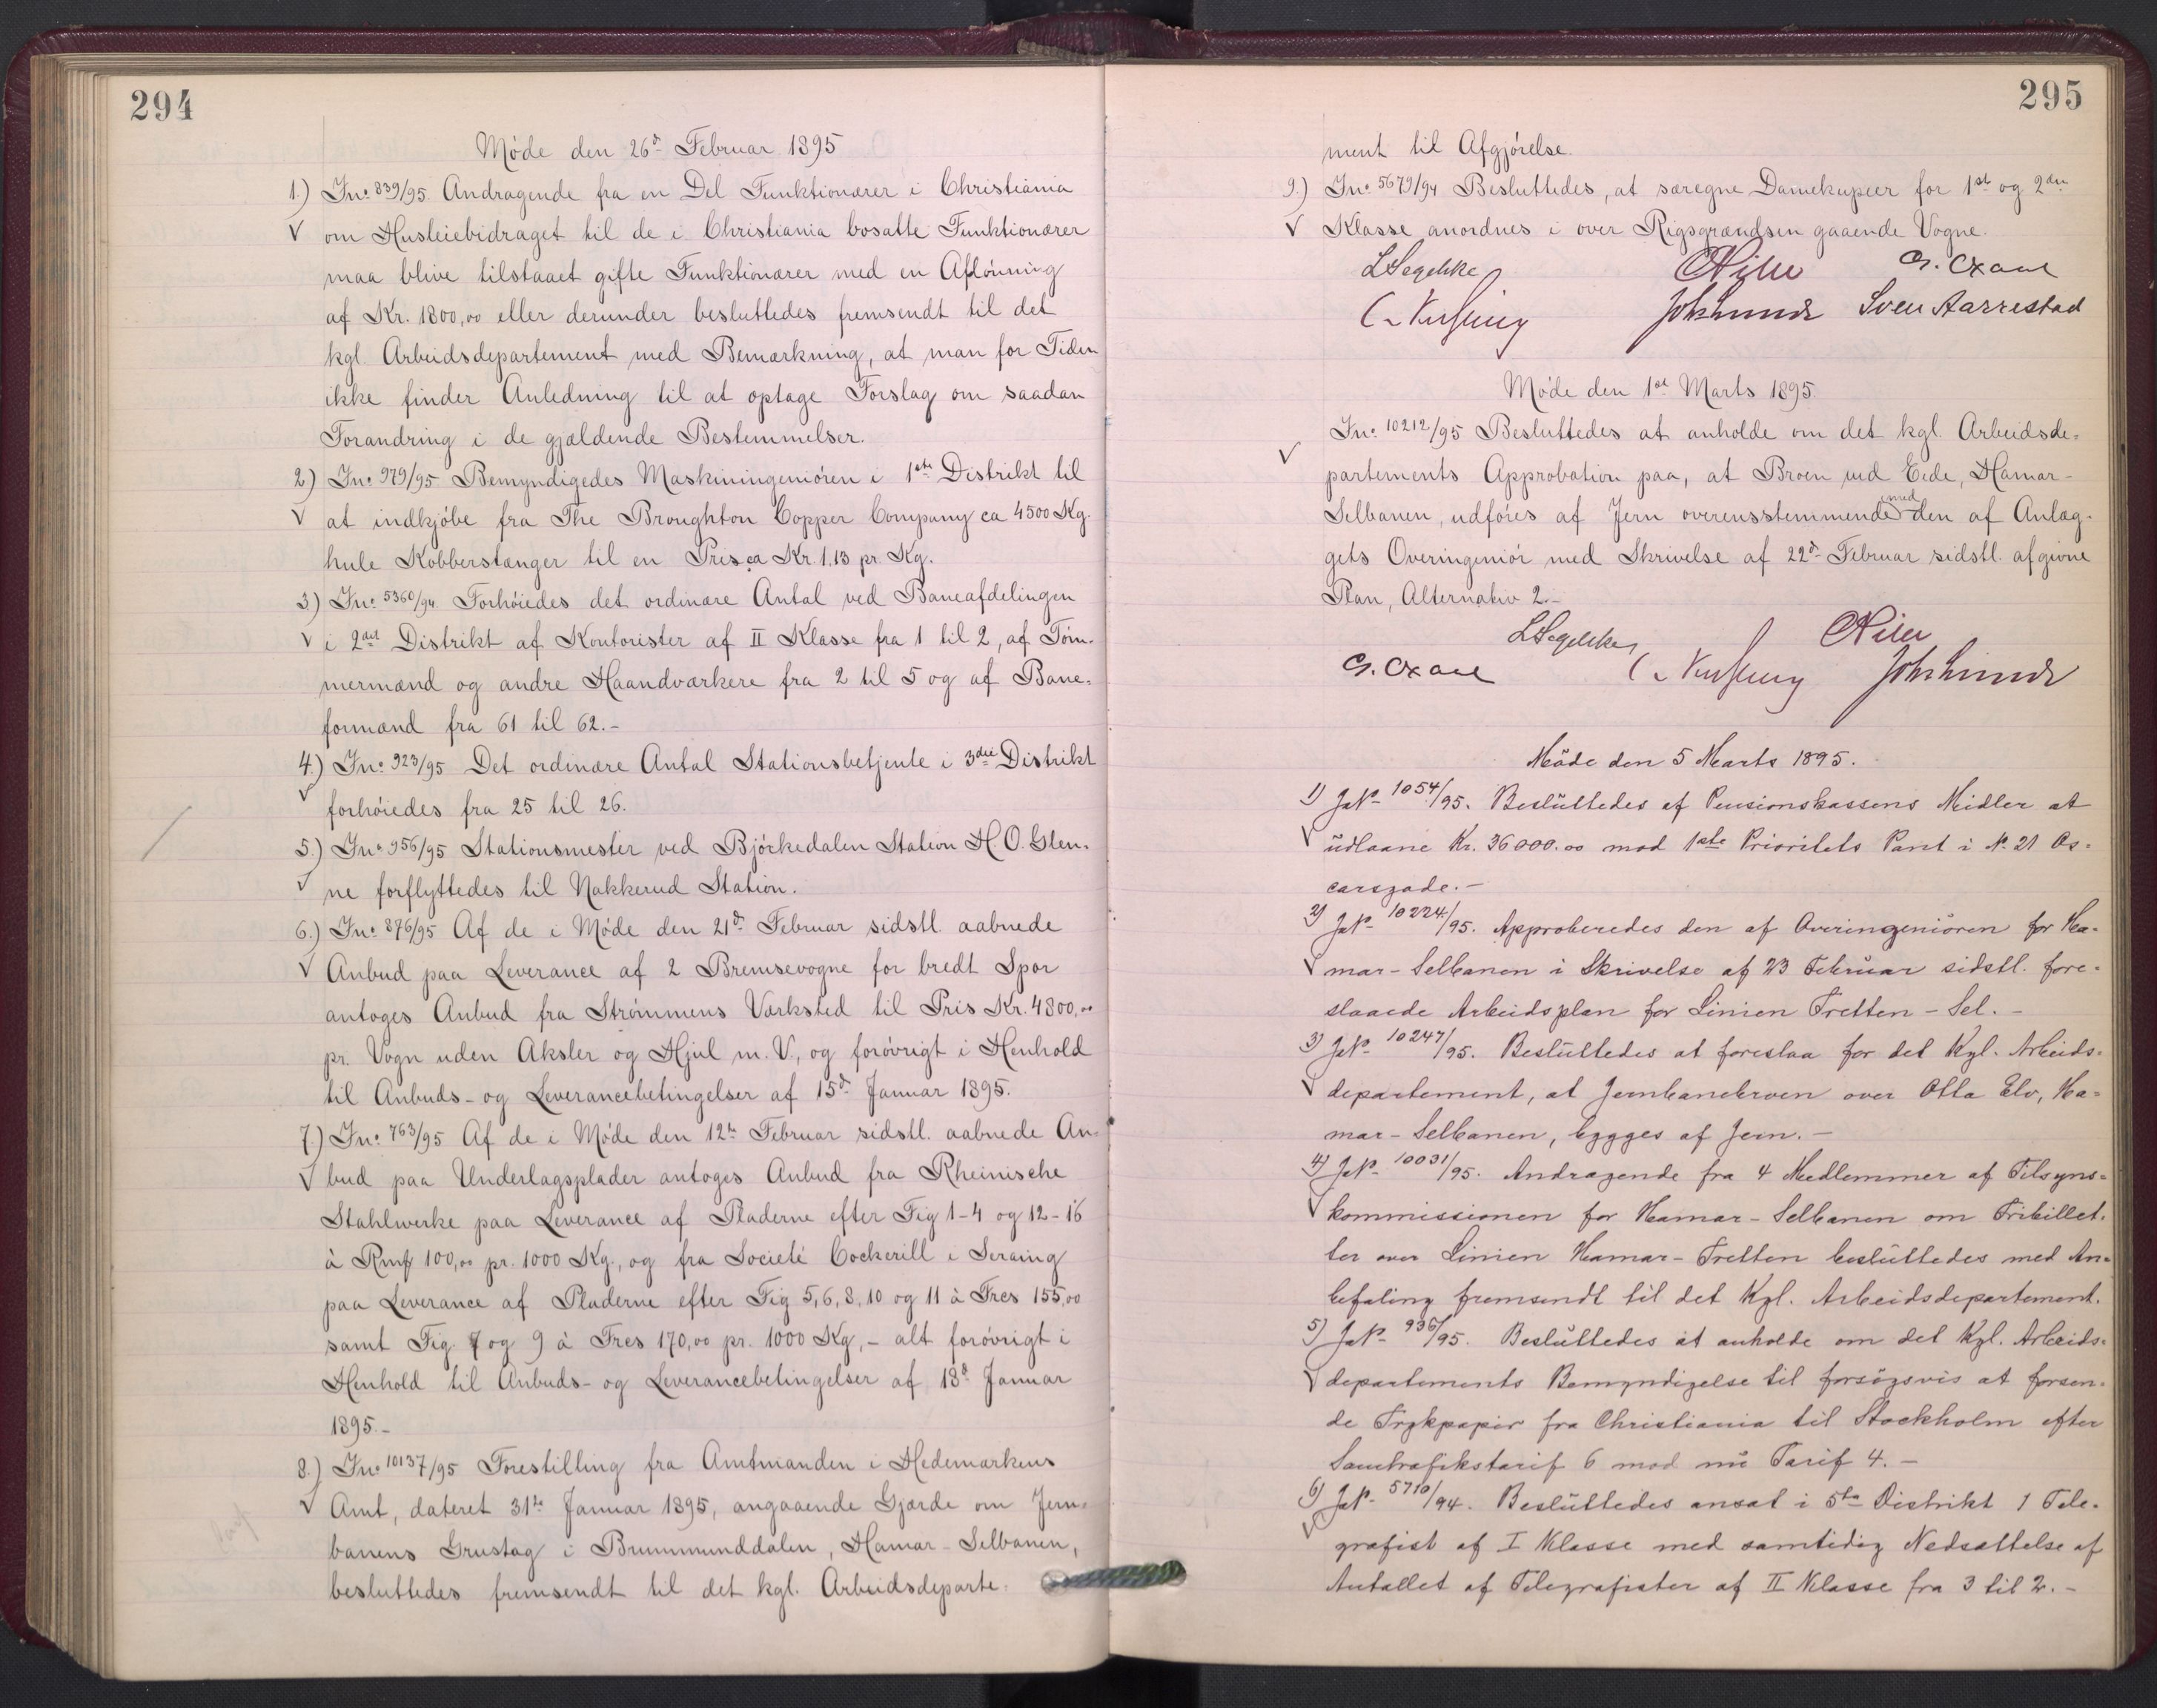 294
Møde den 26d Februar 1895
1.) Jn: 839/95 Andragende fra en Del Funktionærer i Christiania
om Husleiebidraget til de i Christiania bosatte Funktionærer
maa blive tilstaaet gifte Funktionærer med en Aflønning
af Kr. 1800,00 eller derunder besluttedes fremsendt til det
kgl. Arbeidsdepartement med Bemærkning, at man for Tiden
ikke finder Anledning til at optage Forslag om saadan
Forandring i de gjældende Bestemmelser.
2) Jn: 979/95 Bemyndigedes Maskiningeniøren i 1ste Distrikt til
at indkjøbe fra The Broughton Copper Company ca 4500 Kg.
hule Kobberstænger til en Pris ca Kr. 1,13 pr. Kg.
3) Jn: 5360/94. Forhøiedes det ordinære Antal ved Baneafdelingen
i 2det Distrikt af Kontorister af II Klasse fra 1 til 2, af Tøm-
mermænd og andre Haandværkere fra 2 til 5 og af Bane-
formænd fra 61 til 62.-
4.) Jn: 923/95 Det ordinære Antal Stationsbetjente i 3die Distrikt
forhøiedes fra 25 til 26.
5.) Jn: 956/95 Stationsmester ved Bjørkedalen Station H. O. Glen-
ne forflyttedes til Nakkerud Station.
6.) Jn: 876/95 Af de i Møde den 21d Februar sidstl. aabnede
Anbud paa Leverance af 2 Bremsevogne for bredt Spor
antoges Anbud fra Strømmens Værksted til Pris Kr. 4800,00
pr. Vogn uden Aksler og Hjul m. V., og forøvrigt i Henhold
til Anbuds- og Leverancebetingelser af 15d Januar 1895.
7.) Jn: 763/95 Af de i Møde den 12te Februar sidstl. aabnede An-
bud paa Underlagsplader antoges Anbud fra Rheinische
Stahlwerke paa Leverance af Pladerne efter Fig 1-4 og 12-16
à Rmf 100,00 pr. 1000 Kg., og fra Societé Cockerill i Seraing
paa Leverance af Pladerne efter Fig 5, 6, 8, 10 og 11 à Frcs 155,00
samt Fig. 7 og 9 à Frcs 170,00 pr. 1000 Kg,- alt forøvrigt i
Henhold til Anbuds- og Leverancebetingelser af 18d Januar
1895.-
8.) Jn: 10137/95 Forestilling fra Amtmanden i Hedemarkens
Amt, dateret 31te Januar 1895, angaaende Gjærde om Jern-
banens Grustag i Brummunddalen, Hamar-Selbanen,
besluttedes fremsendt til det kgl. Arbeidsdeparte-
295
ment til Afgjørelse.
9.) Jn: 5679/94 Besluttedes, at særegne Damekupeer for 1ste og 2den
Klasse anordnes i over Rigsgrændsen gaaende Vogne.
LSegelcke CPihl G. Oxaal
Joh Lunde Sven Aarrestad
Møde den 1st Marts 1895.
Jn: 10212/95 Besluttedes at anholde om det kgl. Arbeidsde-
partements Approbation paa, at Broen ved Eide, Hamar-
Selbanen, udføres af Jern overensstemmende med den af Anlæg-
gets Overingeniør med Skrivelse af 22d Februar sidstl. afgivne
Plan, Alternativ 2.-
LSegelcke CPihl
G. Oxaal Joh Lunde
Møde den 5 Marts 1895.
1) JN- 1054/95. Besluttedes af Pensionskassens Midler at
udlaane Kr. 36000.00 mod 1ste Prioritets Pant i N. 21 Os-
carsgade.-
2) JN- 10224/95. Approberedes den af Overingeniøren for Ha-
mar-Selbanen i Skrivelse af 23 Februar sidstl. fore-
slaaede Arbeidsplan for Linien Tretten-Sel.-
3) JN- 10247/95. Besluttedes at foreslaa for det Kgl. Arbeids-
departement, at Jernbanebroen over Otta Elv, Ha-
mar-Selbanen, bygges af Jern.-
4) JN- 10031/95. Andragende fra 4 Medlemmer af Tilsyns-
kommissionen for Hamar-Selbanen om Fribillet-
ter over Linien Hamar-Tretten besluttedes med An-
befaling fremsendt til det Kgl. Arbeidsdepartement.
5) JN- 936/95. Besluttedes at anholde om det Kgl. Arbeids-
departements Bemyndigelse til forsøgsvis at forsen-
de Trykpapir fra Christiania til Stockholm efter
Samtrafikstarif 6 mod nu Tarif 4.-
6) JN- 5710/94. Besluttedes ansat i 5te Distrikt 1 Tele-
grafist af I Klasse med samtidig Nedsættelse af
Antallet af Telegrafister af II Klasse fra 3 til 2.-